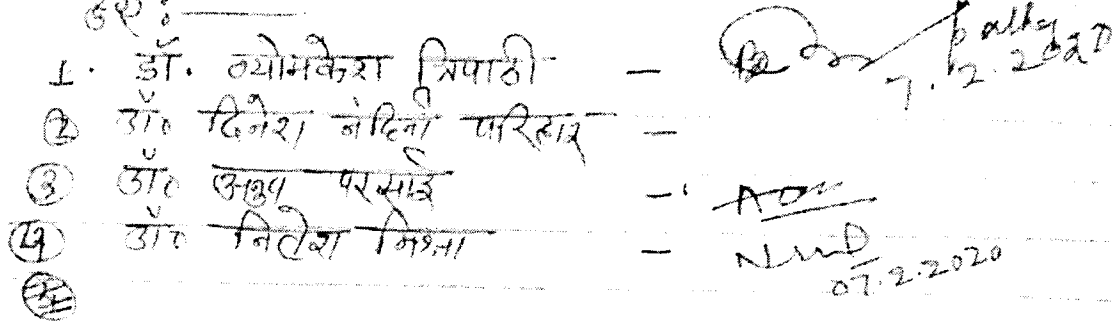 1. डॉ. व्योमकेश त्रिपाठी — 7.2.2020
② डॉ० दिनेश नंदिनी परिहार —
③ डॉ० अनुप परसाई —
④ डॉ० नितेश मिश्रा — 07.2.2020